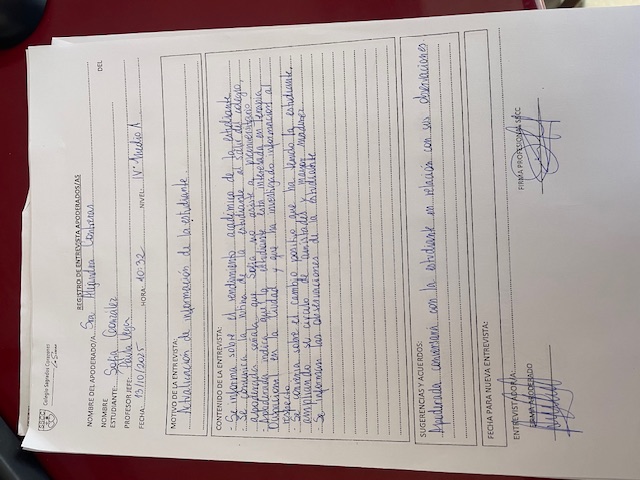 SSCC
Colegio Sagrados Corazones
La Serena
REGISTRO DE ENTREVISTA APODERADOS/AS
NOMBRE DEL APODERADO/A: Sra Alejandra Contreras DEL
NOMBRE
ESTUDIANTE: Sofía González
PROFESOR JEFE: Paula Vega
FECHA: 15/10/2025 HORA: 10:32 NIVEL: IVº Medio A
MOTIVO DE LA ENTREVISTA:
Actualización de información de la estudiante
CONTENIDO DE LA ENTREVISTA:
- Se informa sobre el rendimiento académico de la estudiante
- Se consulta la rutina de la estudiante al salir del colegio,
apoderada señala que Sofía no asiste a preuniversitario
- Apoderada indica que la estudiante está interesada en terapia
Ocupacional en la ciudad y que ha investigado información al
respecto
- Se conversa sobre el cambio positivo que ha tenido la estudiante,
ampliando su círculo de amistades y mayor madurez
- Se informan las observaciones de la estudiante
SUGERENCIAS Y ACUERDOS:
Apoderada conversará con la estudiante en relación con sus observaciones
FECHA PARA NUEVA ENTREVISTA:
ENTREVISTADOR/A:
FIRMA APODERADO
FIRMA PROFESOR/A SSCC